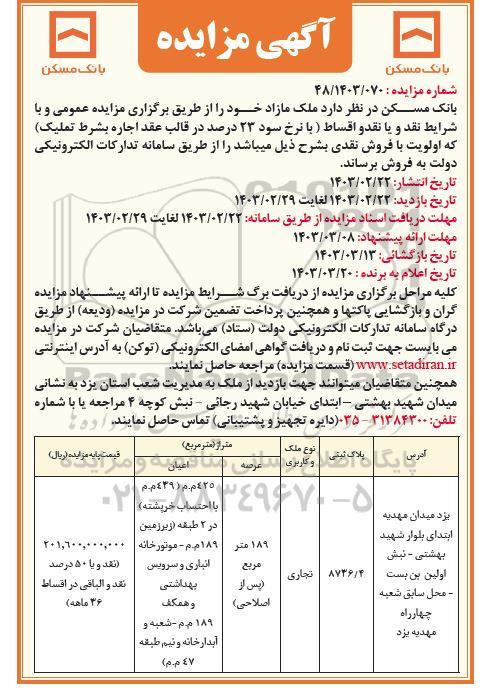 آگهی مزایده
بانک مسکن
بانک مسکن
شماره مزایده : ۴۸/۱۴۰۳/۰۷۰
بانک مسکن در نظر دارد ملک مازاد خود را از طریق برگزاری مزایده عمومی و با
شرایط نقد و یا نقدو اقساط ( با نرخ سود ۲۳ درصد در قالب عقد اجاره بشرط تملیک)
که اولویت با فروش نقدی بشرح ذیل میباشد را از طریق سامانه تدارکات الکترونیکی
دولت به فروش برساند.
تاریخ انتشار: ۱۴۰۳/۰۲/۲۲
تاریخ بازدید: ۱۴۰۳/۰۲/۲۲ لغایت ۱۴۰۳/۰۲/۲۹
مهلت دریافت اسناد مزایده از طریق سامانه: ۱۴۰۳/۰۲/۲۲ لغایت ۱۴۰۳/۰۲/۲۹
مهلت ارائه پیشنهاد: ۱۴۰۳/۰۳/۰۸
تاریخ بازگشائی: ۱۴۰۳/۰۳/۱۳
تاریخ اعلام به برنده : ۱۴۰۳/۰۳/۲۰
کلیه مراحل برگزاری مزایده از دریافت برگ شرایط مزایده تا ارائه پیشنهاد مزایده
گران و بازگشایی پاکتها و همچنین پرداخت تضمین شرکت در مزایده (ودیعه) از طریق
درگاه سامانه تدارکات الکترونیکی دولت (ستاد) می‌باشد. متقاضیان شرکت در مزایده
می بایست جهت ثبت نام و دریافت گواهی امضای الکترونیکی (توکن) به آدرس اینترنتی
www.setadiran.ir (قسمت مزایده) مراجعه حاصل نمایند.
همچنین متقاضیان میتوانند جهت بازدید از ملک به مدیریت شعب استان یزد به نشانی
میدان شهید بهشتی – ابتدای خیابان شهید رجائی – نبش کوچه ۴ مراجعه یا با شماره
تلفن: ۳۱۳۸۴۳۰۰-۰۳۵ (دایره تجهیز و پشتیبانی) تماس حاصل نمایند.
آدرس
پلاک ثبتی
نوع ملک و کاربری
متراژ (مترمربع)
عرصه
اعیان
قیمت پایه مزایده (ریال)
یزد میدان مهدیه
ابتدای بلوار شهید
بهشتی – نبش
اولین بن بست
– محل سابق شعبه
چهارراه
مهدیه یزد
۸۷۳۶/۴
تجاری
۱۸۹ متر
مربع
(پس از
اصلاحی)
۴۲۵م.م (۴۳۹م.م
با احتساب خرپشته)
در ۲ طبقه (زیرزمین
۱۸۹م.م – موتورخانه
انباری و سرویس
بهداشتی
و همکف
۱۸۹ م.م –شعبه و
آبدارخانه و نیم طبقه
۴۷ م.م)
۲۰۱,۶۰۰,۰۰۰,۰۰۰
(نقد و یا ۵۰ درصد
نقد و الباقی در اقساط
۳۶ ماهه)
پایگاه اطلاع رسانی مناقصه و مزایده
۰۲۱-۸۸۳۴۹۶۷۰-۵